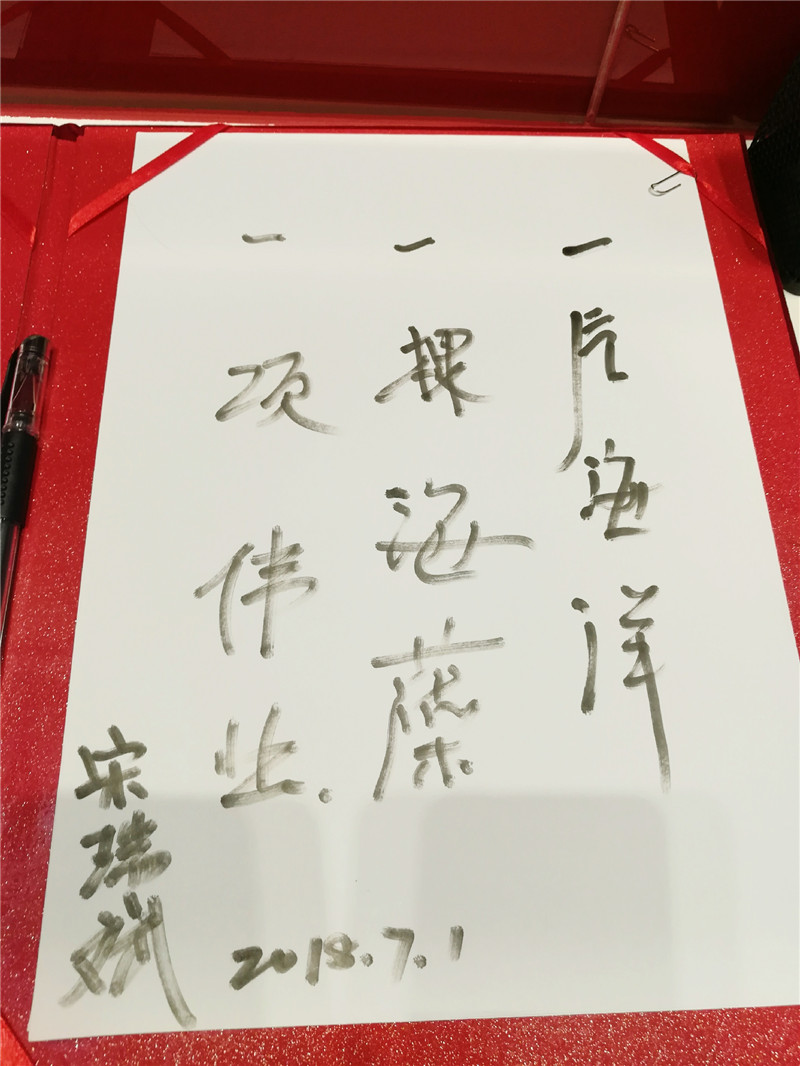 一片海洋
一棵海
一项伟业.
宋瑞斌
2018.7.1